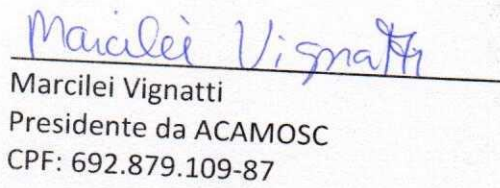 Marcilei Vignatti
Marcilei Vignatti
Presidente da ACAMOSC
CPF: 692.879.109-87